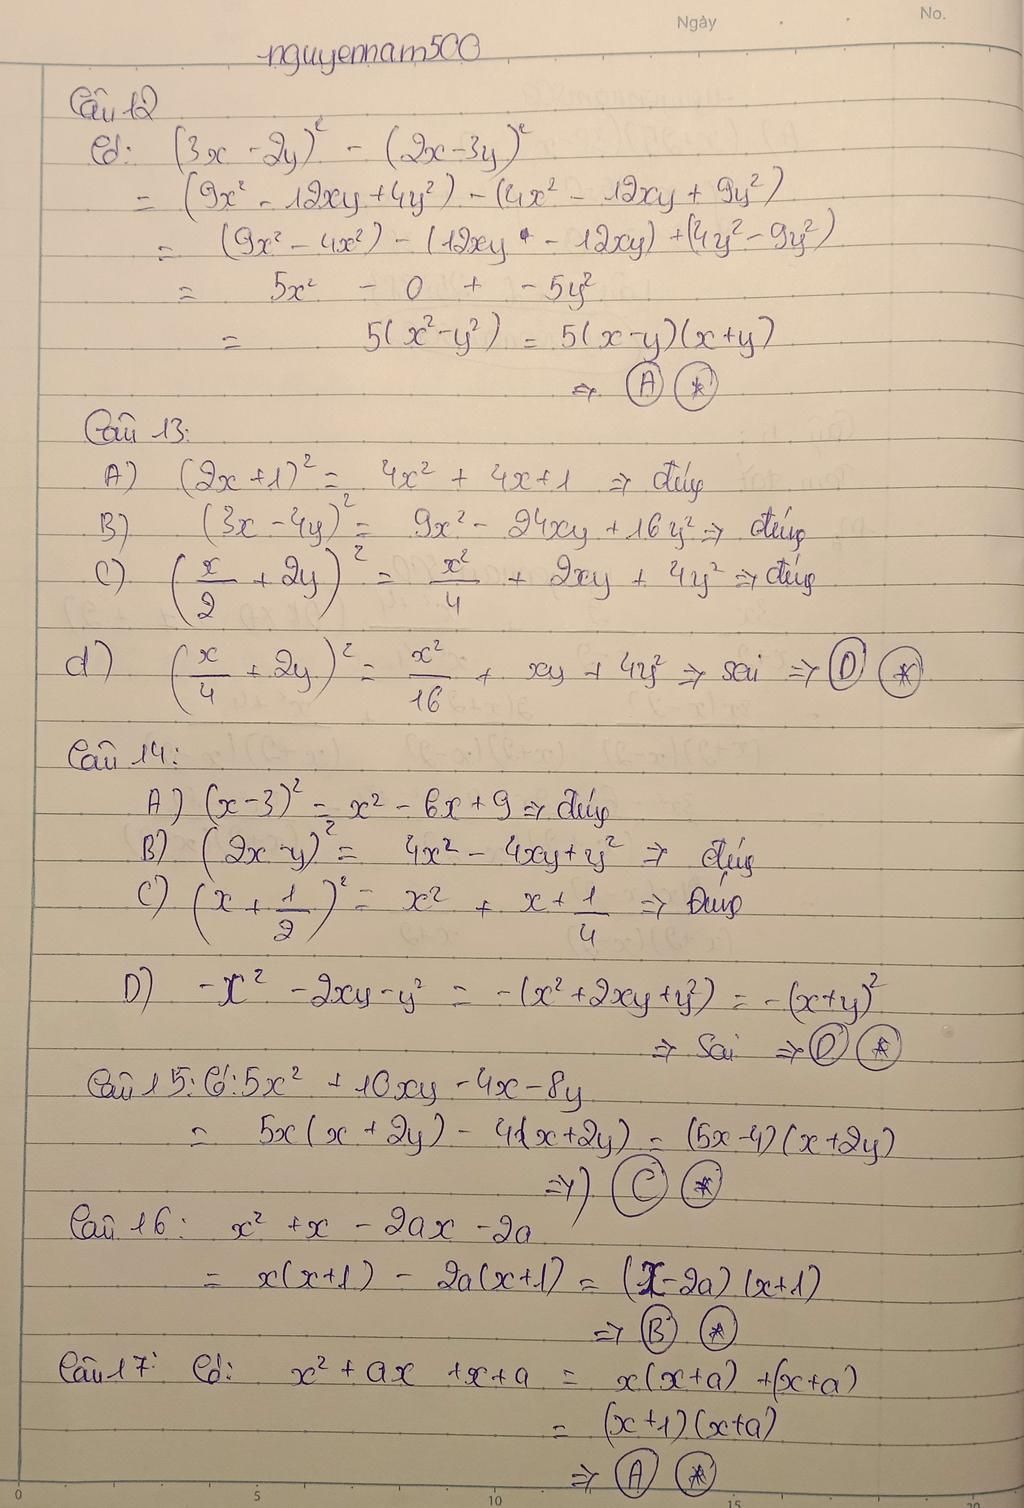 Ngày
No.
nguyennam500
Câu 12
Có: (3x - 2y)² - (2x - 3y)²
= (9x² - 12xy + 4y²) - (4x² - 12xy + 9y²)
= (9x² - 4x²) - (12xy - 12xy) + (4y² - 9y²)
= 5x² - 0 + - 5y²
= 5(x² - y²) = 5(x - y)(x + y)
⇒ A *
Câu 13:
A) (2x + 1)² = 4x² + 4x + 1 ⇒ đúng
B) (3x - 4y)² = 9x² - 24xy + 16y² ⇒ đúng
C) (x/2 + 2y)² = x²/4 + 2xy + 4y² ⇒ đúng
d) (x/4 + 2y)² = x²/16 + xy + 4y² ⇒ sai ⇒ D *
Câu 14:
A) (x - 3)² = x² - 6x + 9 ⇒ đúng
B) (2x - y)² = 4x² - 4xy + y² ⇒ đúng
C) (x + 1/2)² = x² + x + 1/4 ⇒ Đúng
D) -x² - 2xy - y² = -(x² + 2xy + y²) = -(x + y)²
⇒ Sai ⇒ D *
Câu 15: Có: 5x² + 10xy - 4x - 8y
= 5x(x + 2y) - 4(x + 2y) = (5x - 4)(x + 2y)
⇒ C *
Câu 16: x² + x - 2ax - 2a
= x(x + 1) - 2a(x + 1) = (x - 2a)(x + 1)
⇒ B *
Câu 17: Có: x² + ax + x + a = x(x + a) + (x + a)
= (x + 1)(x + a)
⇒ A *
0 5 10 15 20